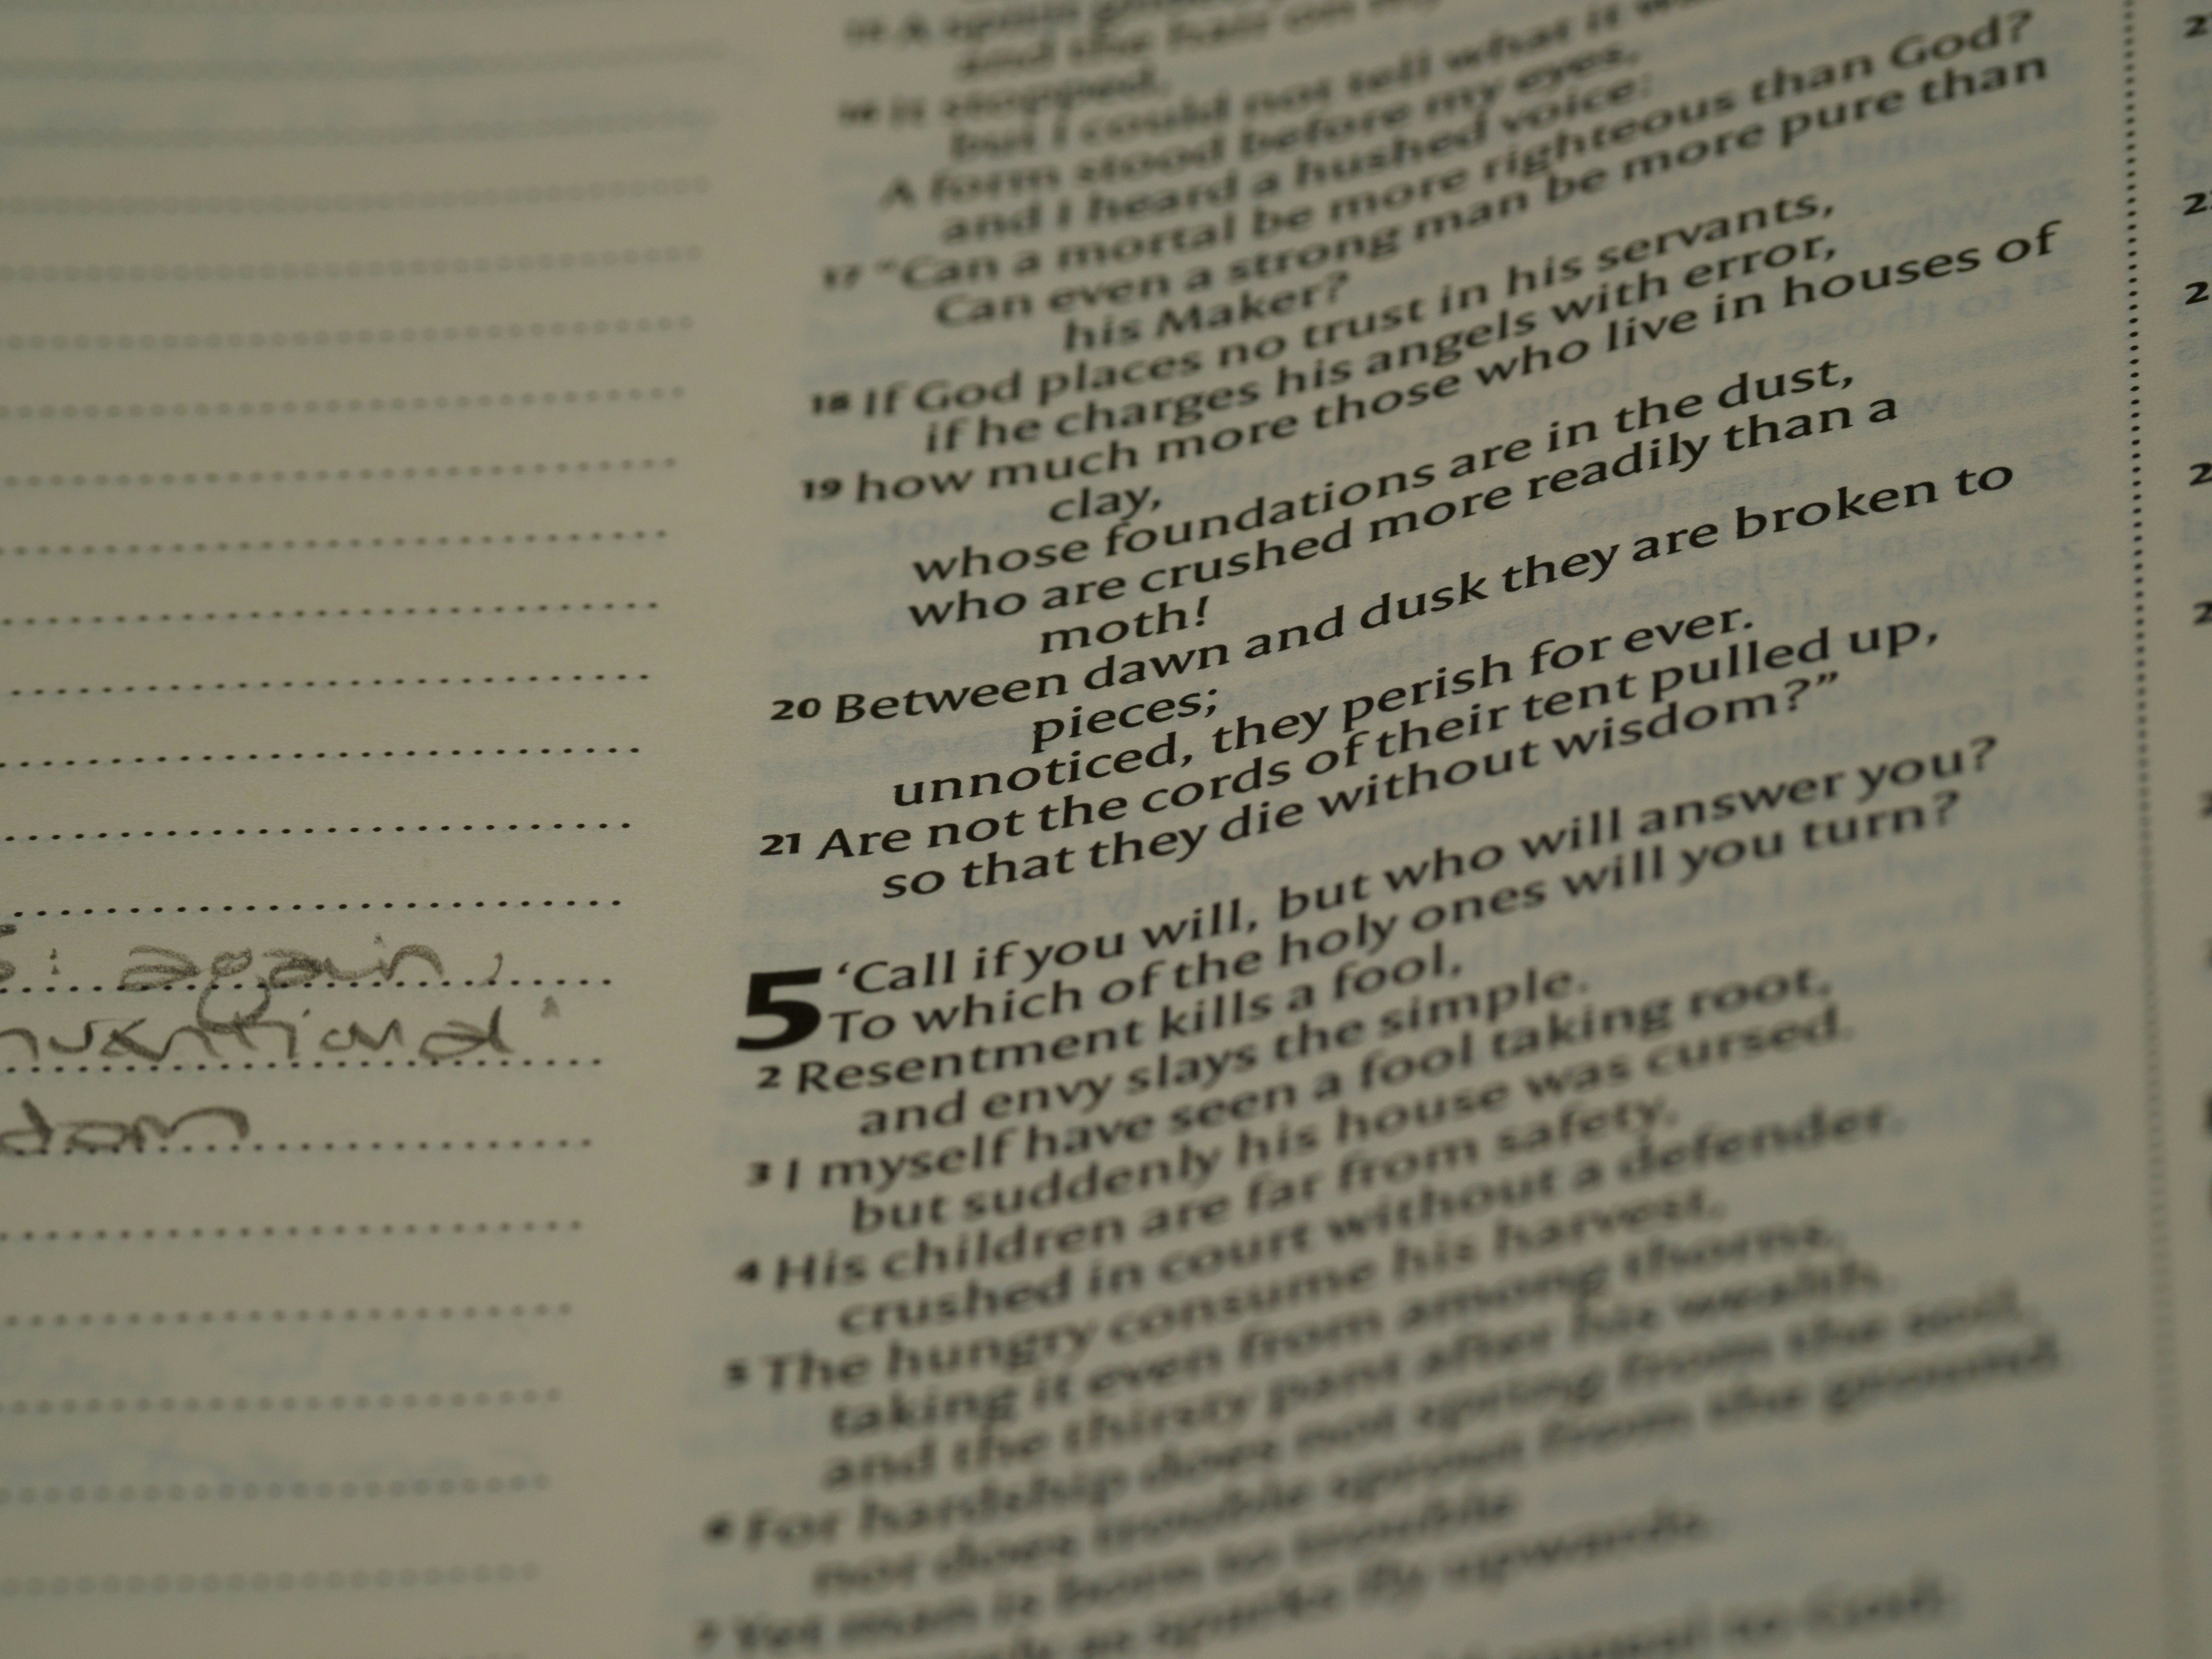 and the hair on my
16 It stopped,
but I could not tell what it
A form stood before my eyes,
and I heard a hushed voice:
17 "Can a mortal be more righteous than God?
Can even a strong man be more pure than
his Maker?
18 If God places no trust in his servants,
if he charges his angels with error,
19 how much more those who live in houses of
clay,
whose foundations are in the dust,
who are crushed more readily than a
moth!
20 Between dawn and dusk they are broken to
pieces;
unnoticed, they perish for ever.
21 Are not the cords of their tent pulled up,
so that they die without wisdom?”
5 ‘Call if you will, but who will answer you?
To which of the holy ones will you turn?
2 Resentment kills a fool,
and envy slays the simple.
3 I myself have seen a fool taking root,
but suddenly his house was cursed.
4 His children are far from safety,
crushed in court without a defender.
5 The hungry consume his harvest,
taking it even from among thorns,
and the thirsty pant after his wealth.
6 For hardship does not spring from the soil,
nor does trouble sprout from the ground.
7 Yet man is born to trouble
as sparks fly upwards.
again,